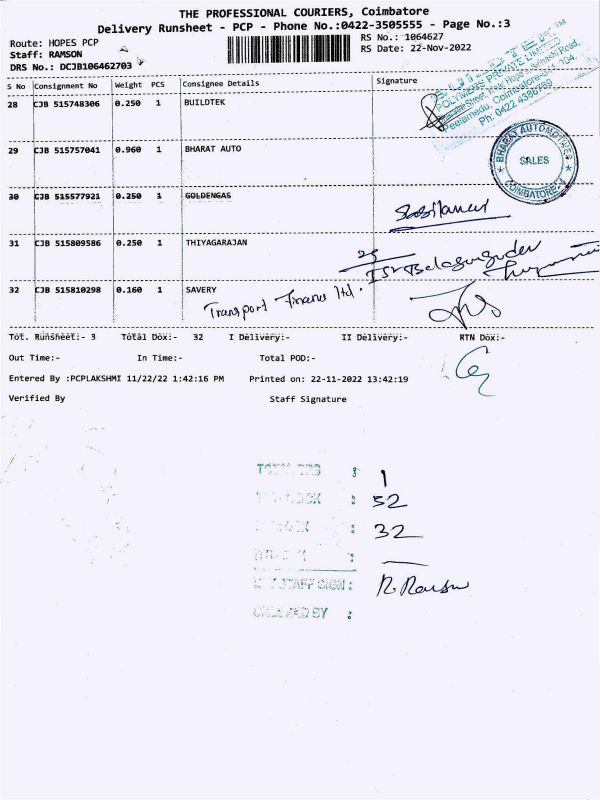 THE PROFESSIONAL COURIERS, Coimbatore
Delivery Runsheet - PCP - Phone No.:0422-3505555 - Page No.:3
Route: HOPES PCP
RS No.: 1064627
Staff: RAMSON
RS Date: 22-Nov-2022
DRS No.: DCJB106462703
S No Consignment No Weight PCS Consignee Details Signature
28 CJB 515748306 0.250 1 BUILDTEK
POLYMERS PRIVATE LIMITED
Ph: 0422
29 CJB 515757041 0.960 1 BHARAT AUTO
BHARAT AUTOMOTIVES
SALES
COIMBATORE-4
30 CJB 515577921 0.250 1 GOLDENGAS
31 CJB 515809586 0.250 1 THIYAGARAJAN
32 CJB 515810298 0.160 1 SAVERY
Transport Finance ltd.
Tot. Runsheet:- 3 Total Dox:- 32 I Delivery:- II Delivery:- RTN Dox:-
Out Time:- In Time:- Total POD:-
Entered By :PCPLAKSHMI 11/22/22 1:42:16 PM Printed on: 22-11-2022 13:42:19
Verified By Staff Signature
: 1
: 52
: 32
: —
STAFF SIGN : R. Ramson
BY :